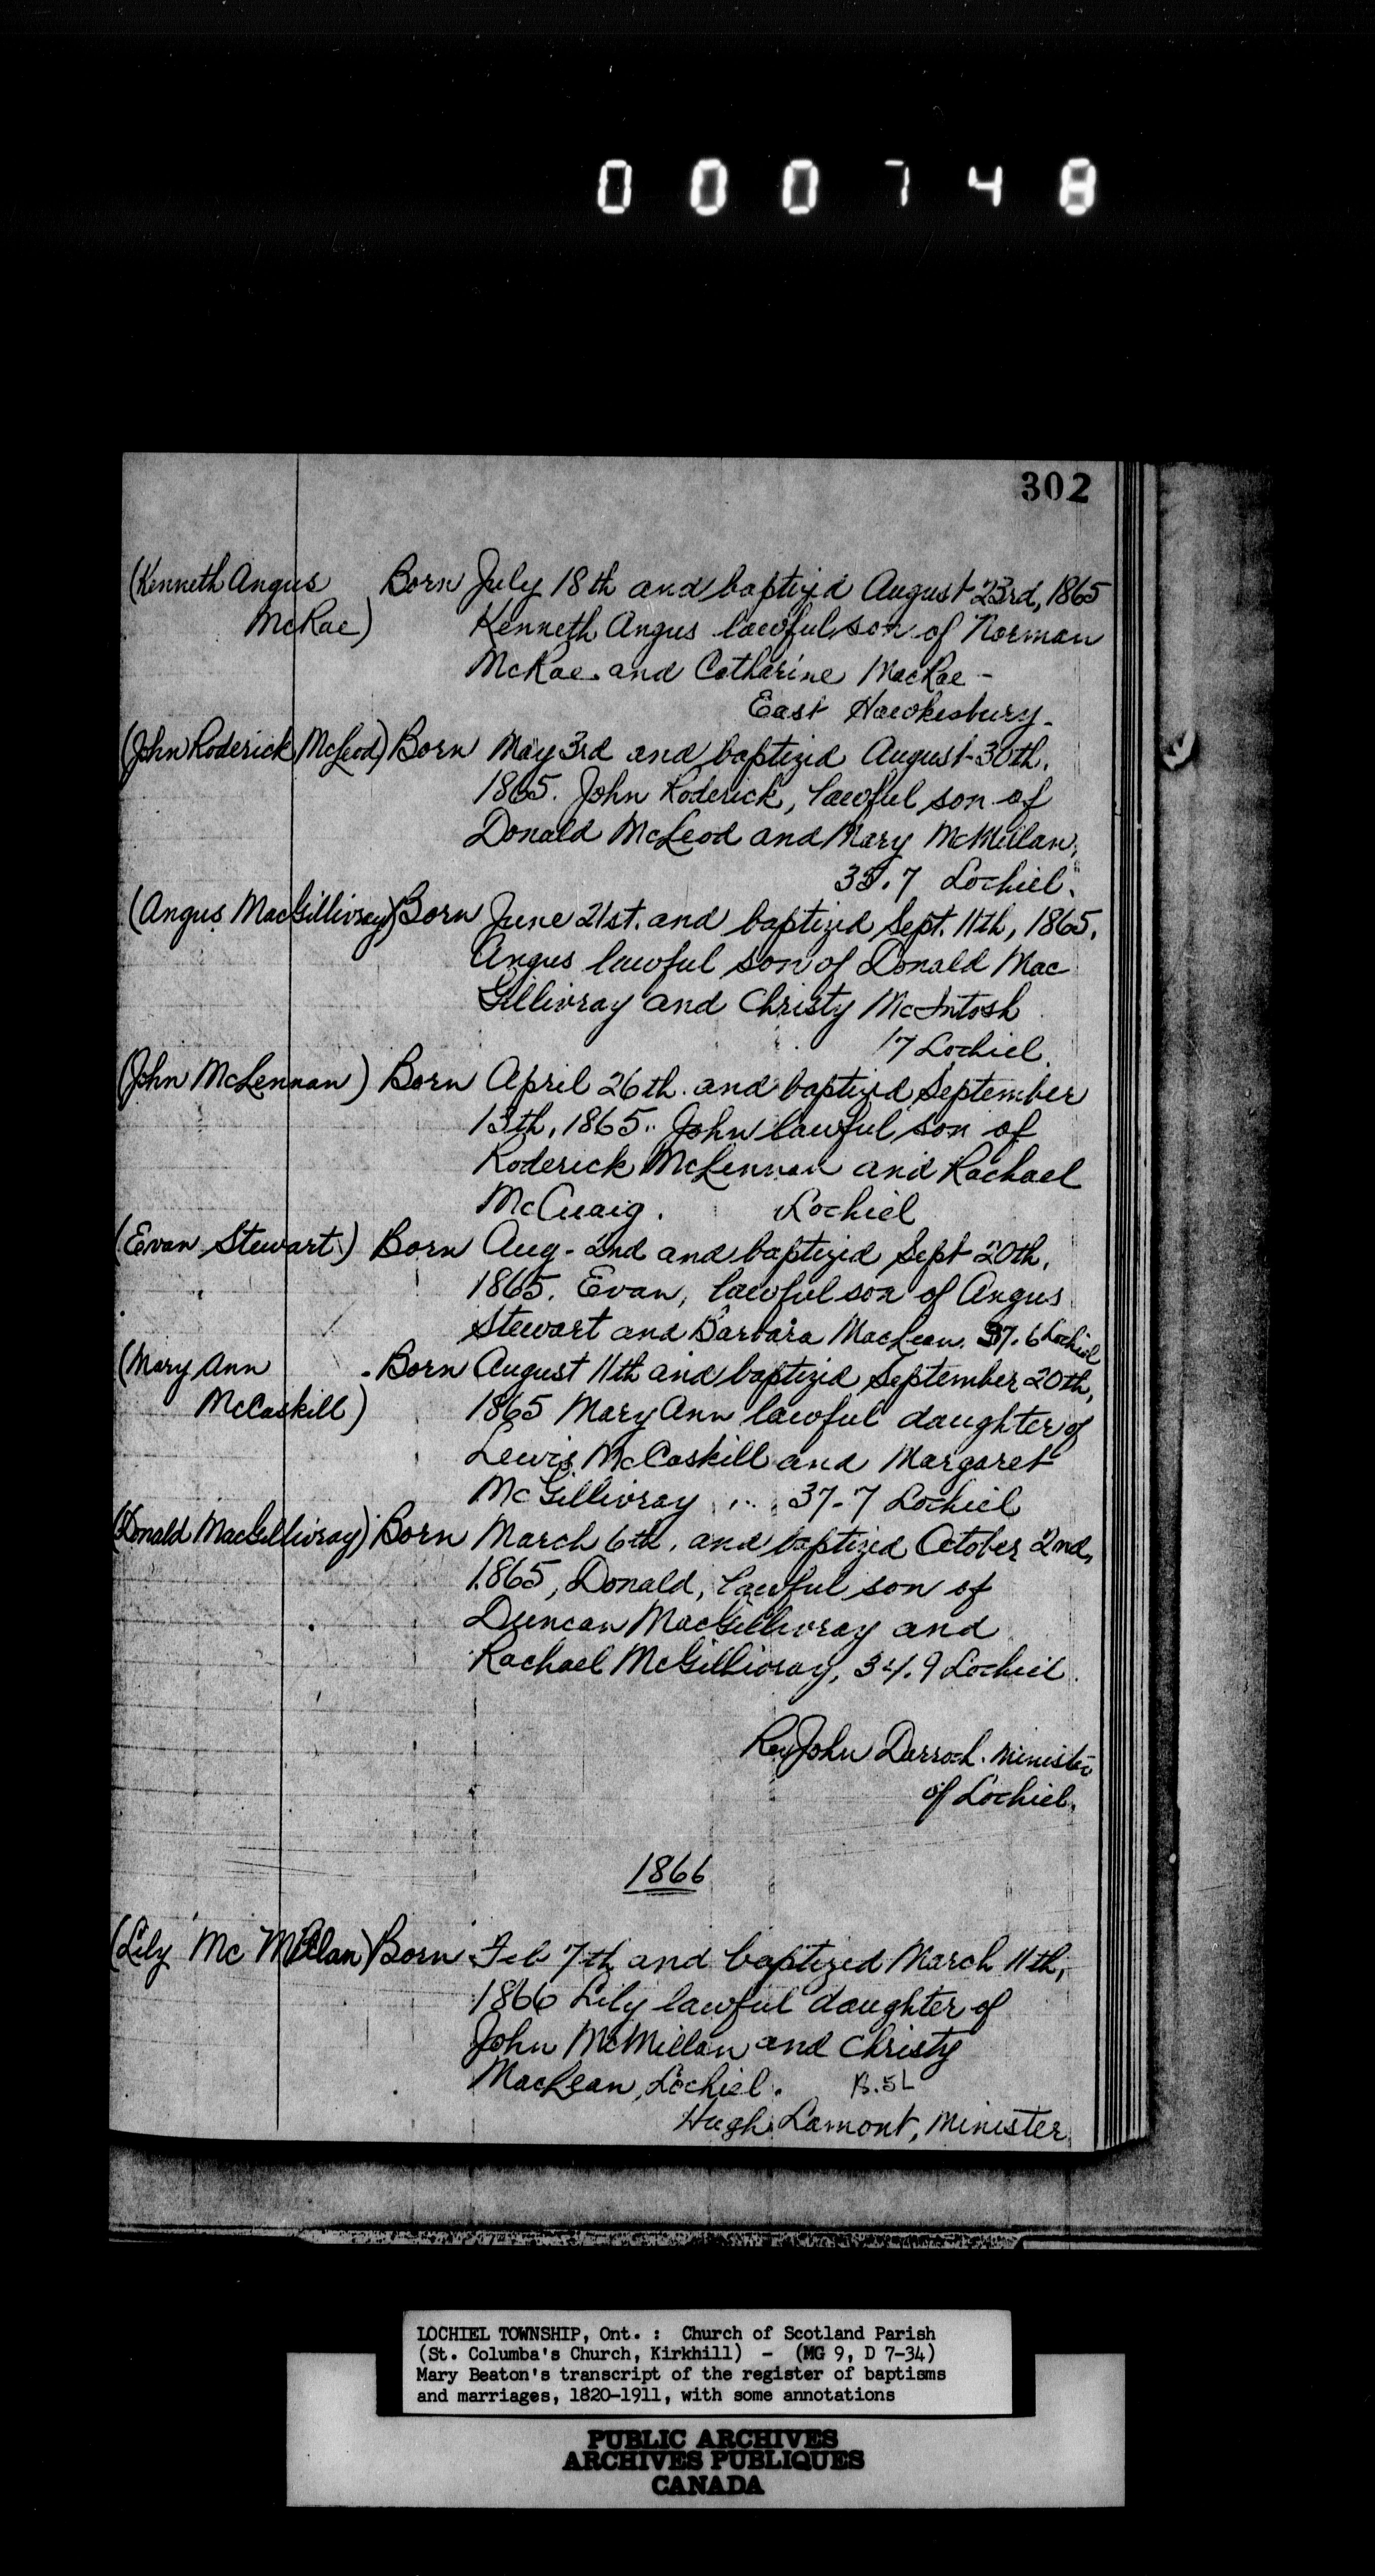 000748
302
(Kenneth Angus Born July 18th and baptized August 23rd, 1865
McRae) Kenneth Angus lawful son of Norman
McRae and Catharine MacRae -
East Hawkesbury.
(John Roderick McLeod) Born May 3rd and baptized August 30th.
1865. John Roderick, lawful son of
Donald McLeod and Mary McMillan,
35.7 Lochiel.
(Angus MacGillivray) Born June 21st. and baptized Sept. 11th, 1865.
Angus lawful son of Donald Mac
Gillivray and Christy McIntosh
17 Lochiel.
(John McLennan) Born April 26th. and baptized September
13th, 1865. John lawful son of
Roderick McLennan and Rachael
McCuaig. Lochiel
(Evan Stewart) Born Aug - 2nd and baptized Sept 20th.
1865. Evan, lawful son of Angus
Stewart and Barbara MacLean. 37.6 Lochiel
(Mary Ann Born August 11th and baptized September 20th,
McCaskill) 1865 Mary Ann lawful daughter of
Lewis McCaskill and Margaret
McGillivray 37-7 Lochiel
(Donald MacGillivray) Born March 6th, and baptized October 2nd,
1865, Donald, lawful son of
Duncan MacGillivray and
Rachael McGillivray, 34.9 Lochiel
Rev John Darroch. Minister
of Lochiel.
1866
(Lily McMillan) Born Feb 7th and baptized March 11th,
1866 Lily lawful daughter of
John McMillan and Christy
MacLean, Lochiel. B.5L
Hugh Lamont, Minister
LOCHIEL TOWNSHIP, Ont. : Church of Scotland Parish
(St. Columba's Church, Kirkhill) - (MG 9, D 7-34)
Mary Beaton's transcript of the register of baptisms
and marriages, 1820-1911, with some annotations
PUBLIC ARCHIVES
ARCHIVES PUBLIQUES
CANADA